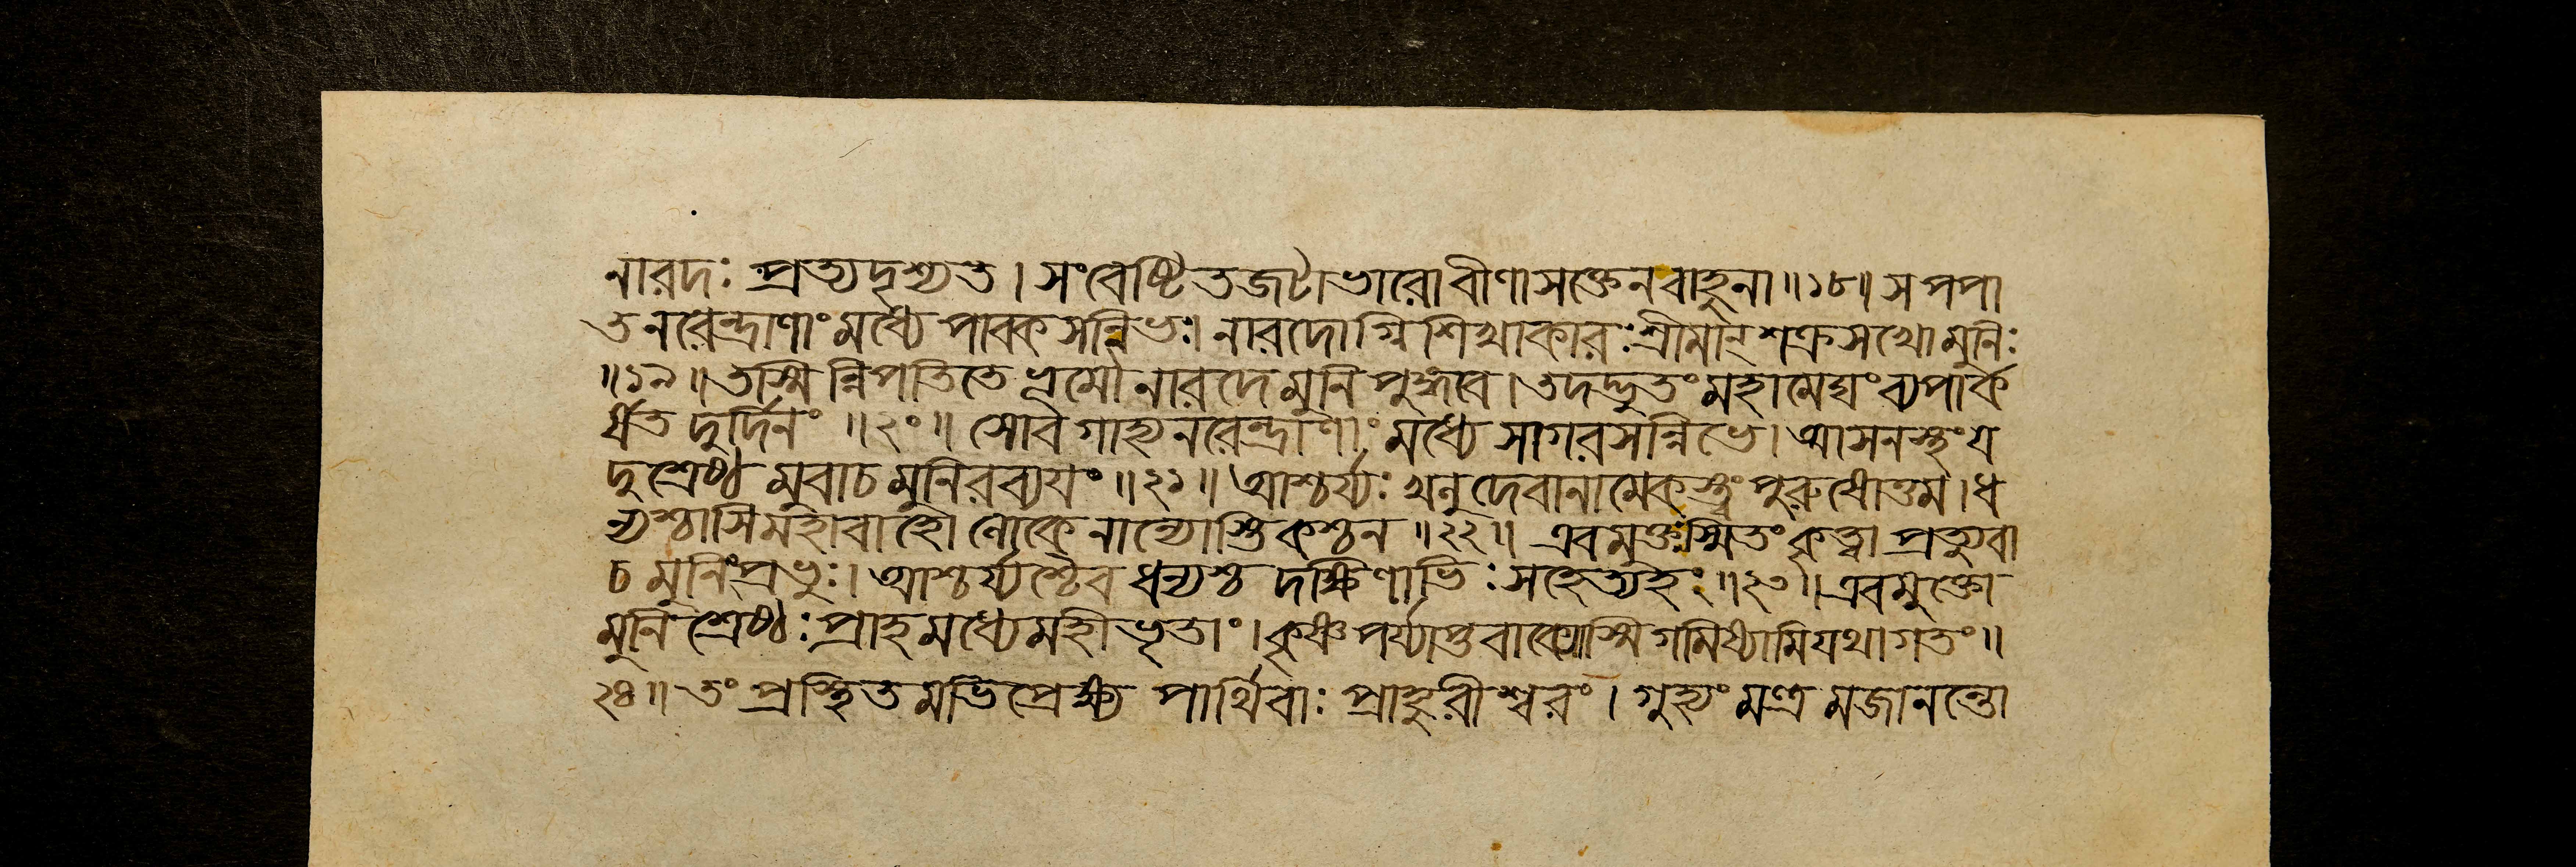 নারদঃ প্রত্যদৃশ্যত। সংবেষ্টিতজটাভারোবীণাসক্তেনবাহুনা॥১৮॥ সপপা
তনরেন্দ্রাণাংমধ্যে পাবকসন্নিভঃ। নারদোগ্নিশিখাকারঃশ্রীমান্শক্রসখোমুনিঃ
॥১৯॥ তস্মিন্নিপতিতে ভূমৌনারদেমুনিপুঙ্গবে। তদদ্ভুতংমহামেঘংব্যপাক
র্ষত দুর্দিনং॥২০॥ সোবগাহ্যনরেন্দ্রাণাংমধ্যে সাগরসন্নিভে। আসনস্থংয
দুশ্রেষ্ঠমুবাচমুনিরব্যয়ং॥২১॥ আশ্চর্য্যঃ খলুদেবানামেকস্ত্বংপুরুষোত্তম। ধ
ন্যশ্চাসিমহাবাহো লোকেনান্যোস্তিকশ্চন॥২২॥ এবমুক্তঃস্মিতংকৃত্বা প্রত্যুবা
চ মুনিংপ্রভুঃ। আশ্চর্য্যশ্চৈব ধন্যশ্চ দক্ষিণাভিঃ সহেত্যহং॥২৩॥ এবমুক্তো
মুনিশ্রেষ্ঠঃ প্রাহমধ্যেমহীভৃতাং। কৃষ্ণপর্য্যাপ্তবাক্যোস্মিগমিষ্যামিযথাগতং॥
২৪॥ তং প্রস্থিতমভিপ্রেক্ষ্য পার্থিবাঃ প্রাহুরীশ্বরং। গুহ্যংমন্ত্রমজানন্তো